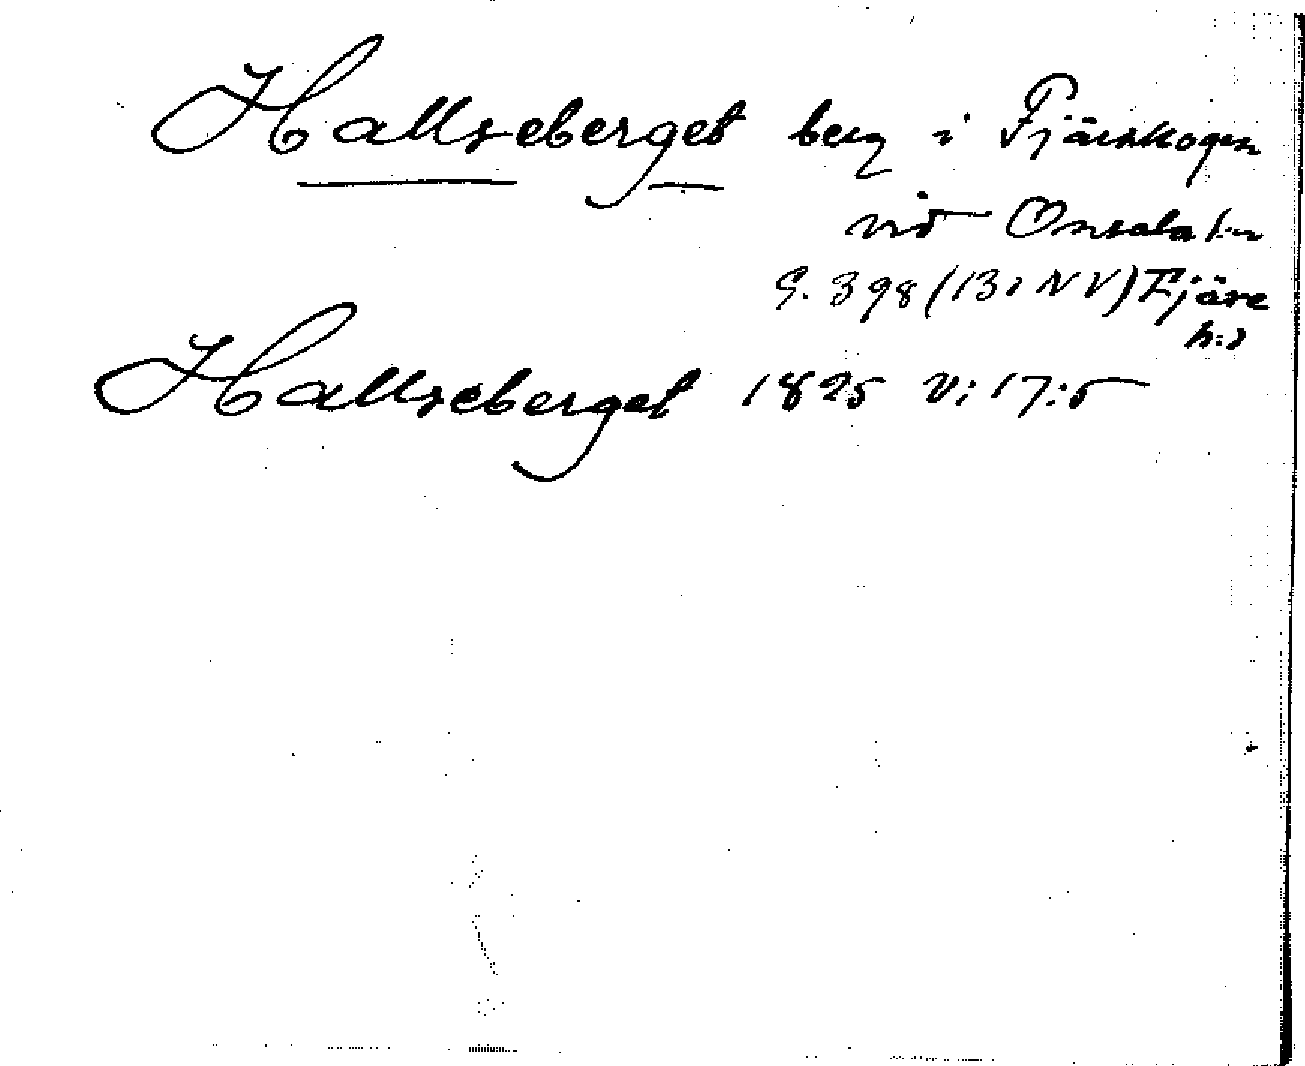 Hallseberget berg i Fjärskogen
vid Onsala
S. 398 (131 NV) Fjäre
h:d
Hallseberget 1825 V: 17:5